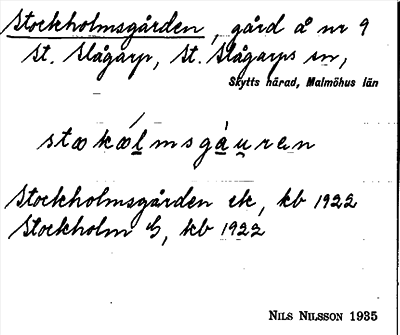 Stockholmsgården, gård å nr 9
St. Slågarp, St. Slågarps sn,
Skytts härad, Malmöhus län
stækælmsgáuran
Stockholmsgården ek, kb 1922
Stockholm
kb 1922
NILS NILSSON 1935